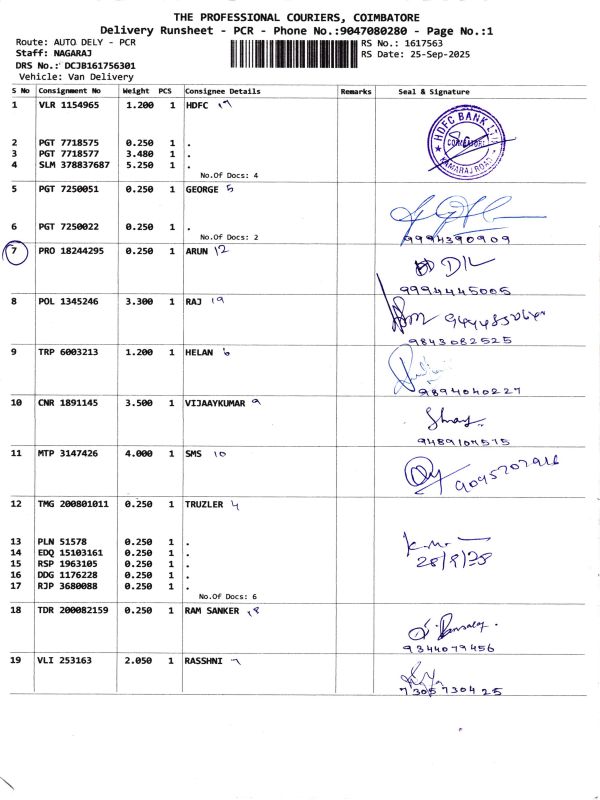 THE PROFESSIONAL COURIERS, COIMBATORE
Delivery Runsheet - PCR - Phone No.:9047080280 - Page No.:1
Route: AUTO DELY - PCR RS No.: 1617563
Staff: NAGARAJ RS Date: 25-Sep-2025
DRS No.: DCJB161756301
Vehicle: Van Delivery
S No Consignment No Weight PCS Consignee Details Remarks Seal & Signature
1 VLR 1154965 1.200 1 HDFC 17
HDFC BANK LTD
COIMBATORE
KAMARAJ ROAD
2 PGT 7718575 0.250 1 .
3 PGT 7718577 3.480 1 .
4 SLM 378837687 5.250 1 .
No.Of Docs: 4
5 PGT 7250051 0.250 1 GEORGE 5
6 PGT 7250022 0.250 1 .
No.Of Docs: 2
9994390909
7 PRO 18244295 0.250 1 ARUN 12
9994445005
8 POL 1345246 3.300 1 RAJ 19
9843082525
9 TRP 6003213 1.200 1 HELAN 6
9894040227
10 CNR 1891145 3.500 1 VIJAAYKUMAR 9
11 MTP 3147426 4.000 1 SMS 10
9095707916
12 TMG 200801011 0.250 1 TRUZLER 4
13 PLN 51578 0.250 1 .
14 EDQ 15103161 0.250 1 .
15 RSP 1963105 0.250 1 .
16 DDG 1176228 0.250 1 .
17 RJP 3680088 0.250 1 .
No.Of Docs: 6
18 TDR 200082159 0.250 1 RAM SANKER 18
9344079456
19 VLI 253163 2.050 1 RASSHNI 7
7305730425